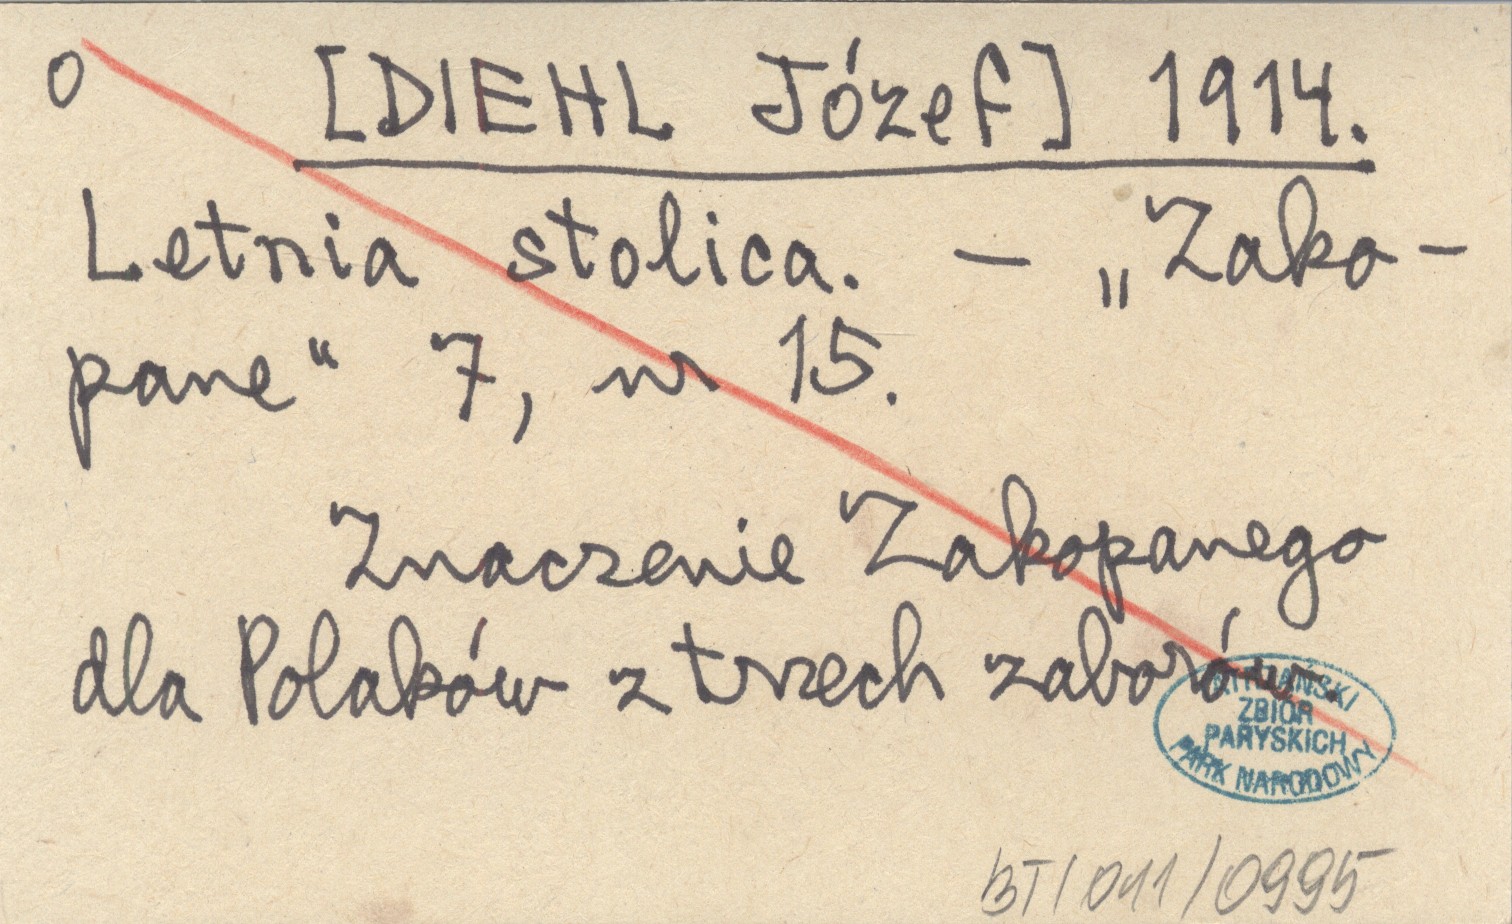 o [DIEHL Józef] 1914.
Letnia stolica. – „Zako-
pane“ 7, nr 15.
Znaczenie Zakopanego
dla Polaków z trzech zaborów.
TATRZAŃSKI
ZBIÓR
PARYSKICH
PARK NARODOWY
BT/011/0995